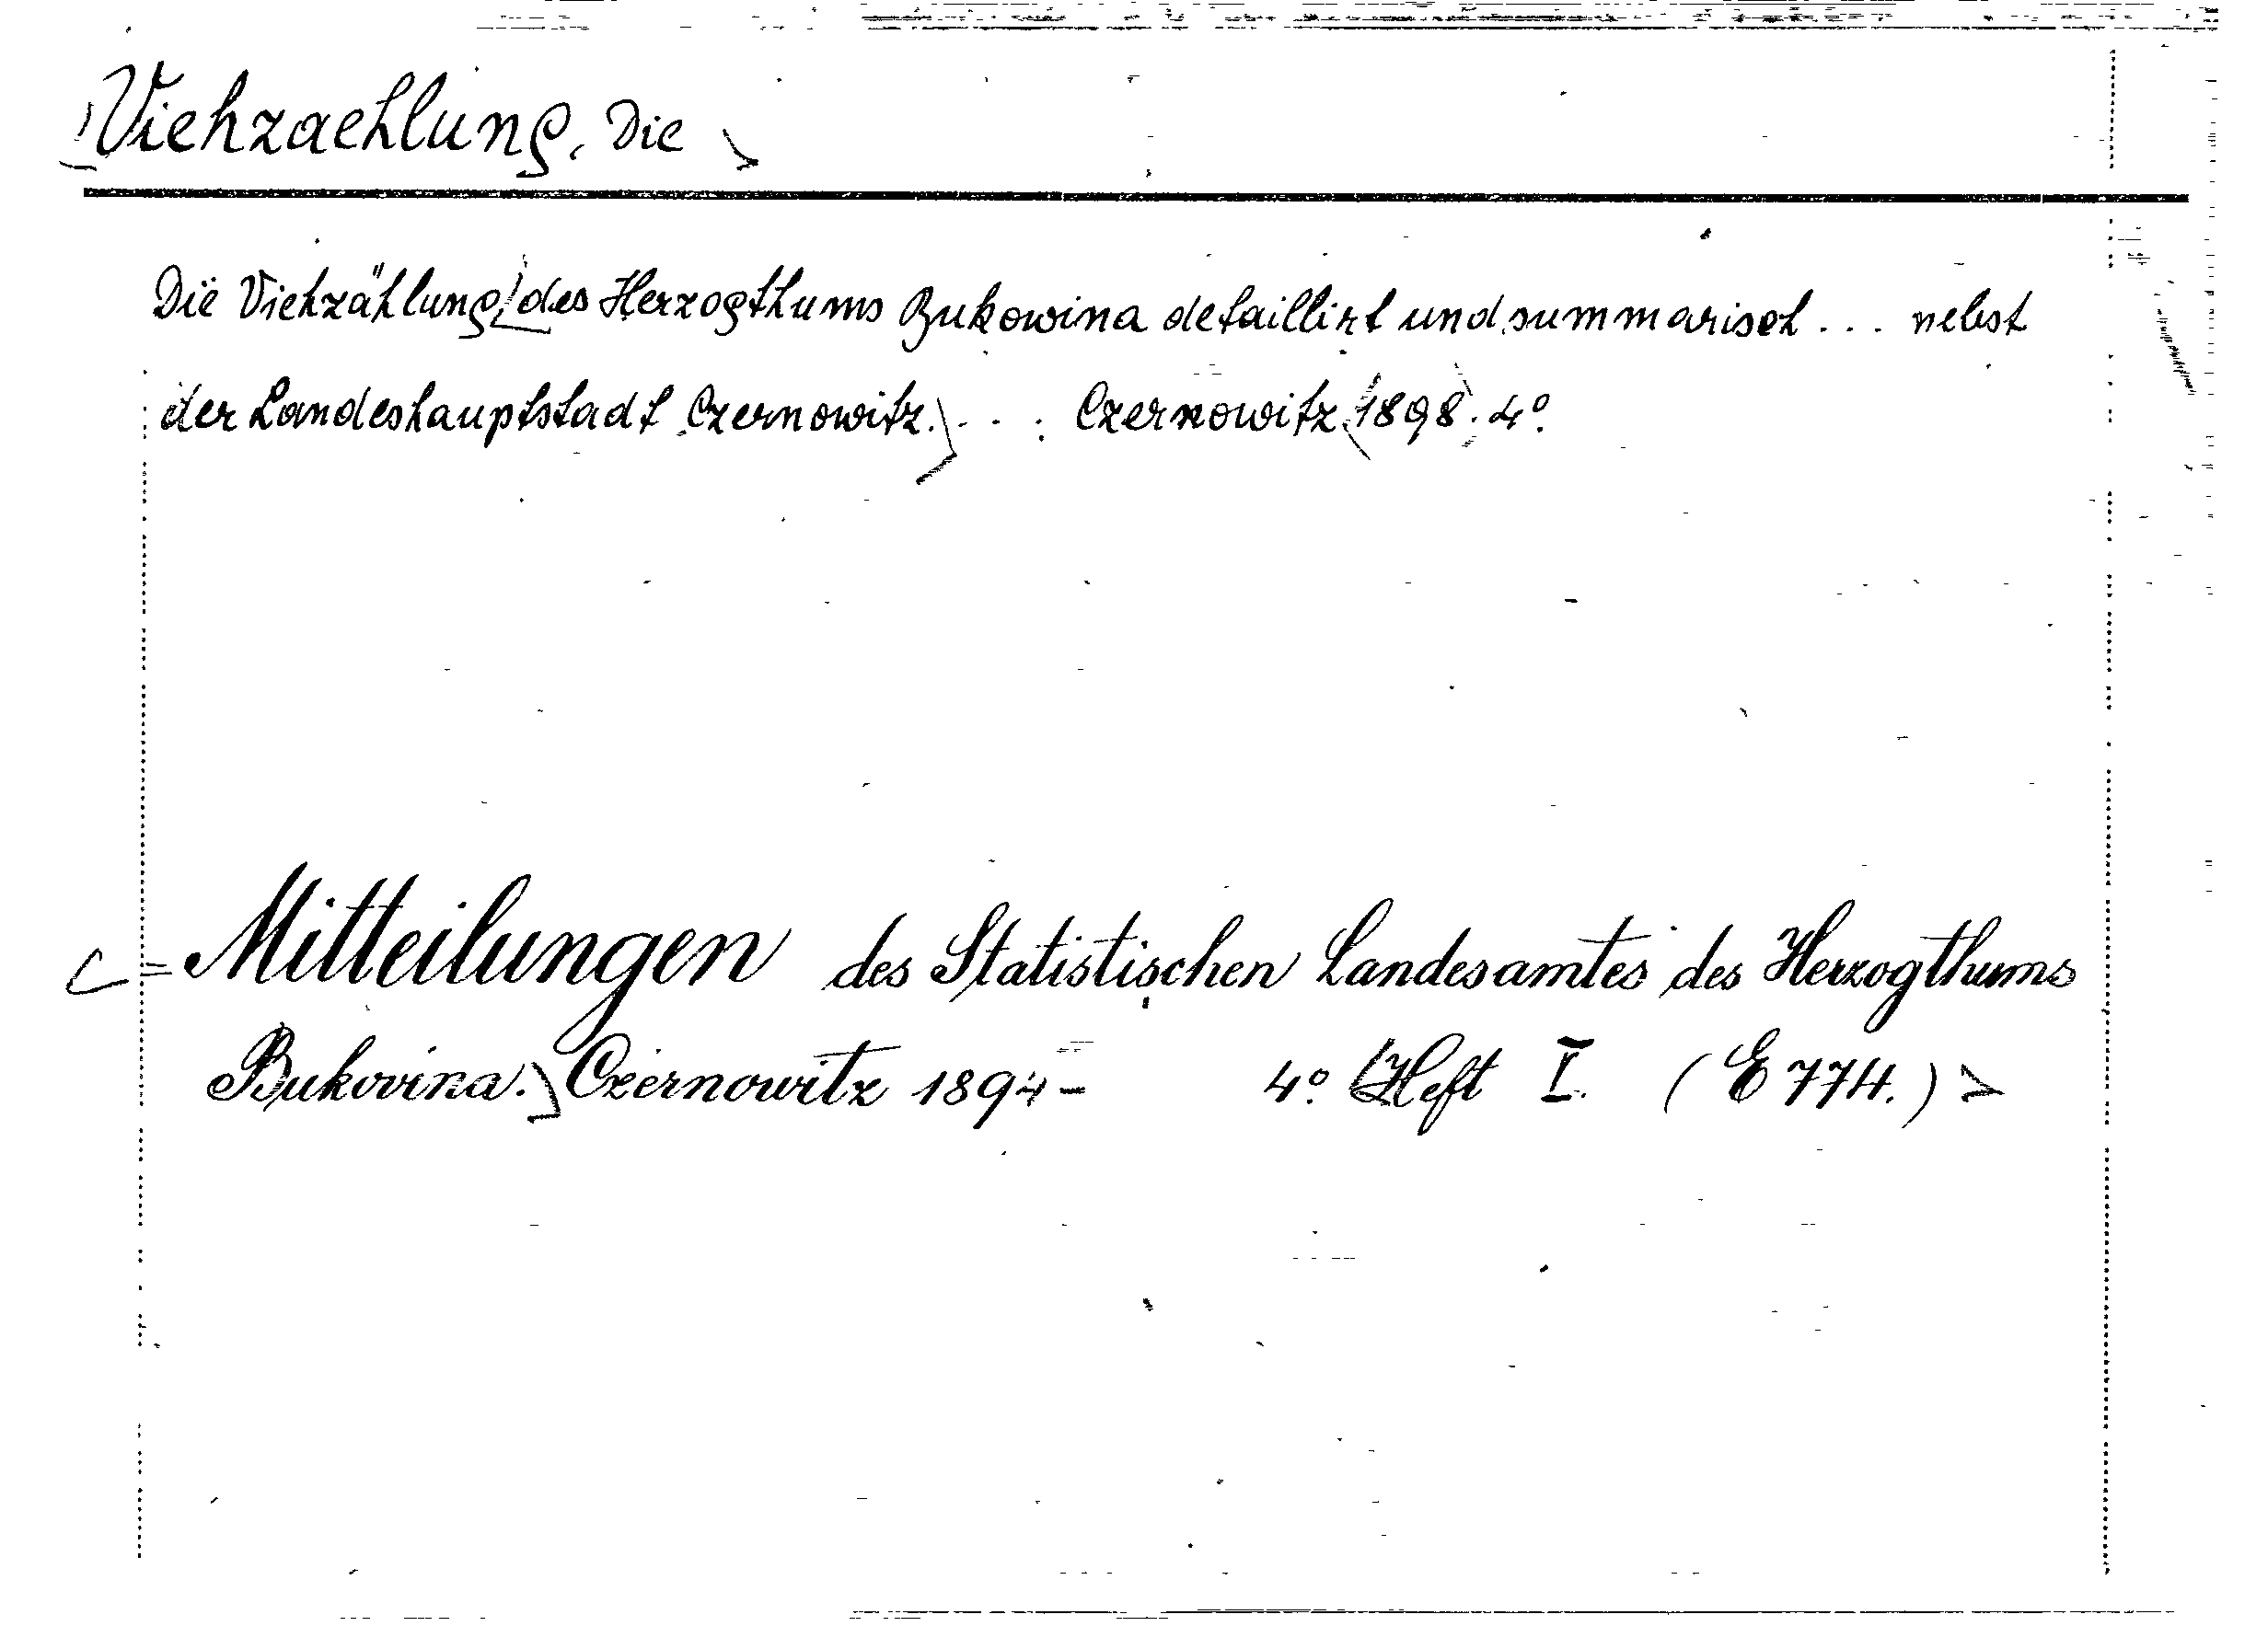 Viehzaehlung, Die
Die Viehzählung des Herzogthums Bukowina detaillirt und summarisch ... nebst
der Landeshauptstadt Czernowitz. ... Czernowitz 1898. 4º.
= Mitteilungen des Statistischen Landesamtes des Herzogthums
Bukovina. Czernowitz 1894- 4º. Heft I. (E 774.)